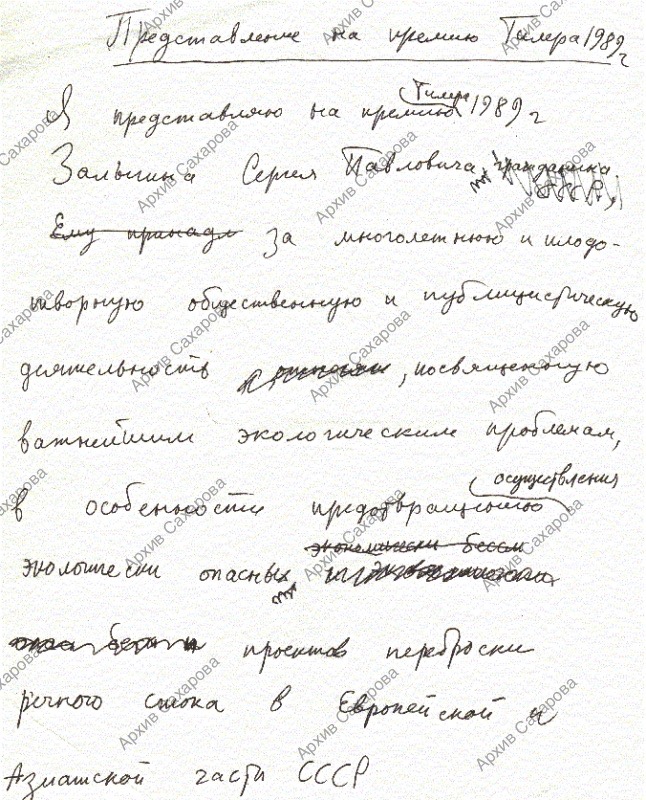 Представление на премию Тилера 1989 г
Я представляю на премию Тилера 1989 г
Залыгина Сергея Павловича, гражданина СССР,
Ему принадл за многолетнюю и плодо-
творную общественную и публицистическую
деятельность , посвященную
важнейшим экологическим проблемам,
в особенности предотвращению осуществления
экономически бессм
экологически опасных
проектов переброски
речного стока в Европейской и
Азиатской части СССР
Архив Сахарова